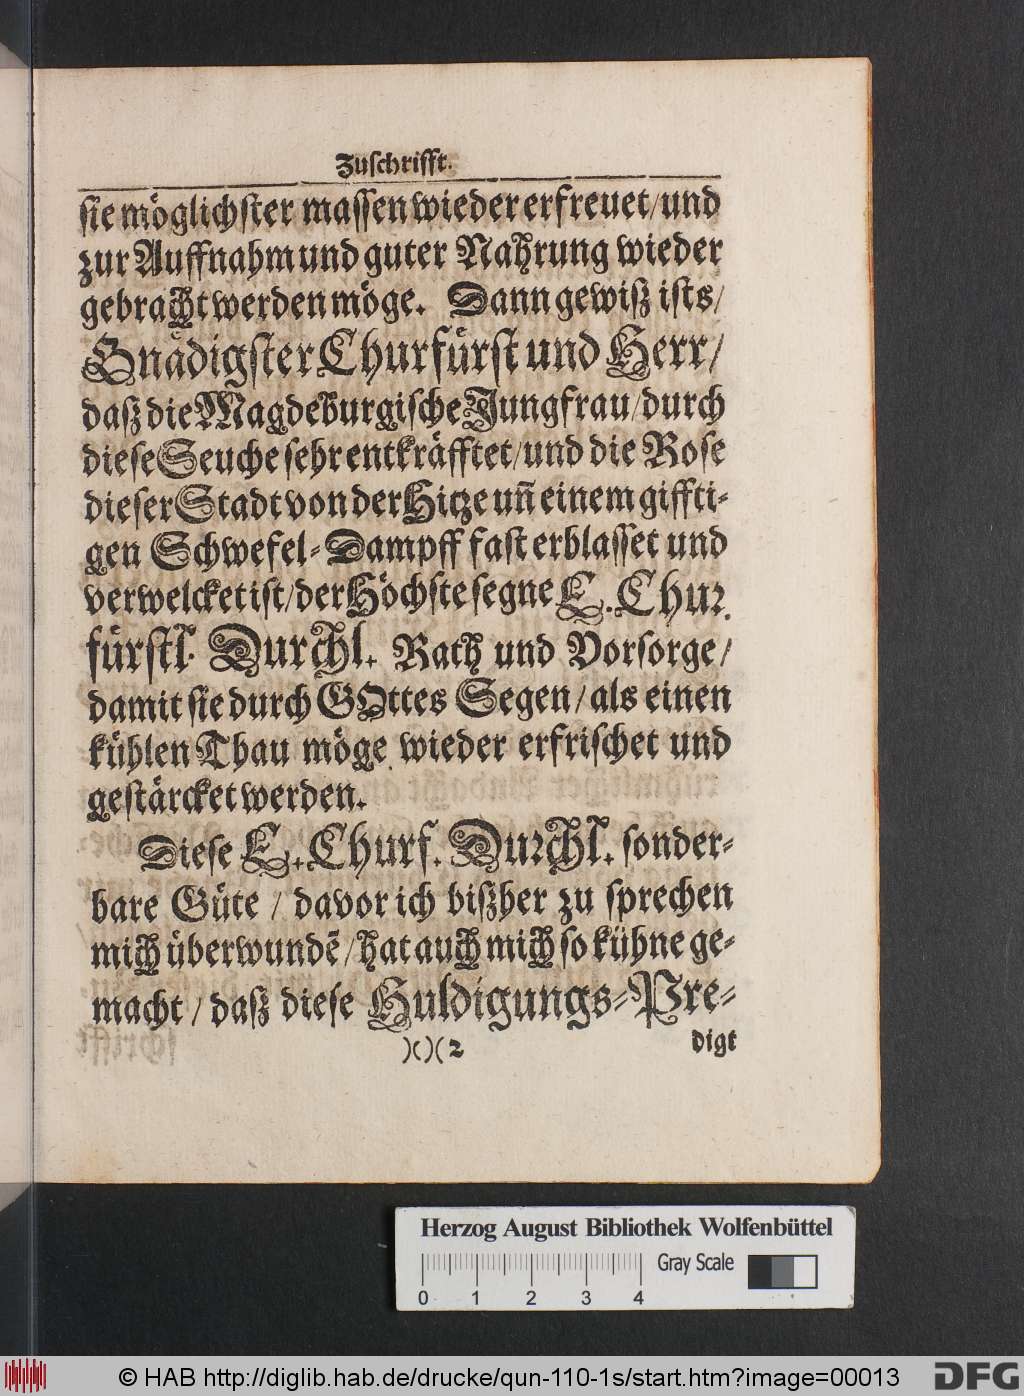 Zuschrifft.
sie möglichster massen wieder erfreuet/und
zur Auffnahm und guter Nahrung wieder
gebracht werden möge. Dann gewiß ists/
Gnädigster Churfürst und Herr/
daß die Magdeburgische Jungfrau/durch
diese Seuche sehr entkräfftet/und die Rose
dieser Stadt von der Hitze uñ einem giffti-
gen Schwefel-Dampff fast erblasset und
verwelcket ist/der Höchste segne E. Chur.
fürstl. Durchl. Rath und Vorsorge/
damit sie durch GOttes Segen/als einen
kühlen Thau möge wieder erfrischet und
gestärcket werden.
Diese E. Churf. Durchl. sonder-
bare Güte / davor ich bißher zu sprechen
mich überwundē/hat auch mich so kühne ge-
macht / daß diese Huldigungs-Pre-
)()( 2 digt
Herzog August Bibliothek Wolfenbüttel
Gray Scale
0 1 2 3 4
© HAB http://diglib.hab.de/drucke/qun-110-1s/start.htm?image=00013
DFG